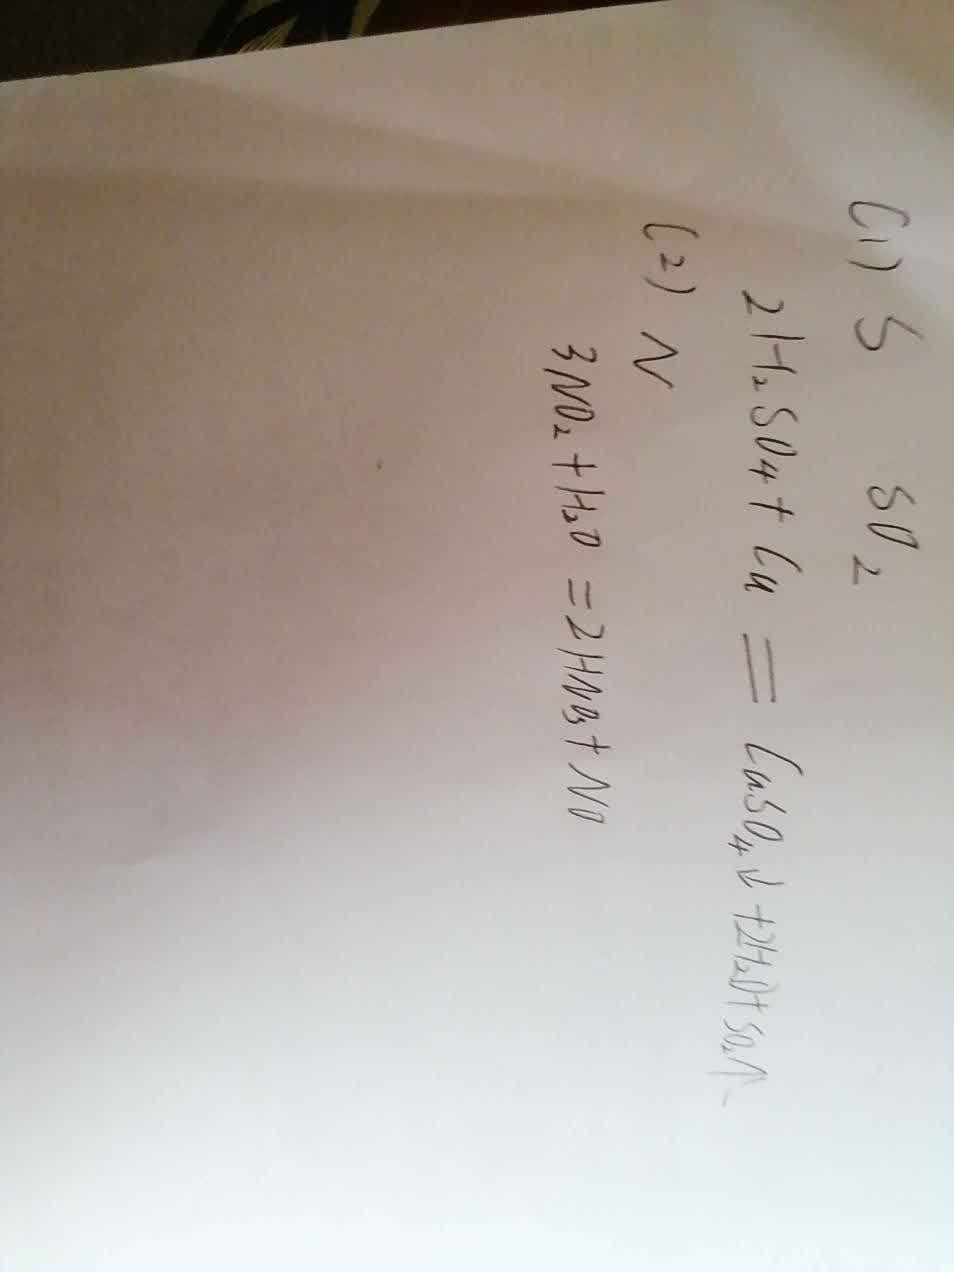 (1) S SO₂
2H₂SO₄ + Cu = CuSO₄↓ + 2H₂O + SO₂↑
(2) N
3NO₂ + H₂O = 2HNO₃ + NO